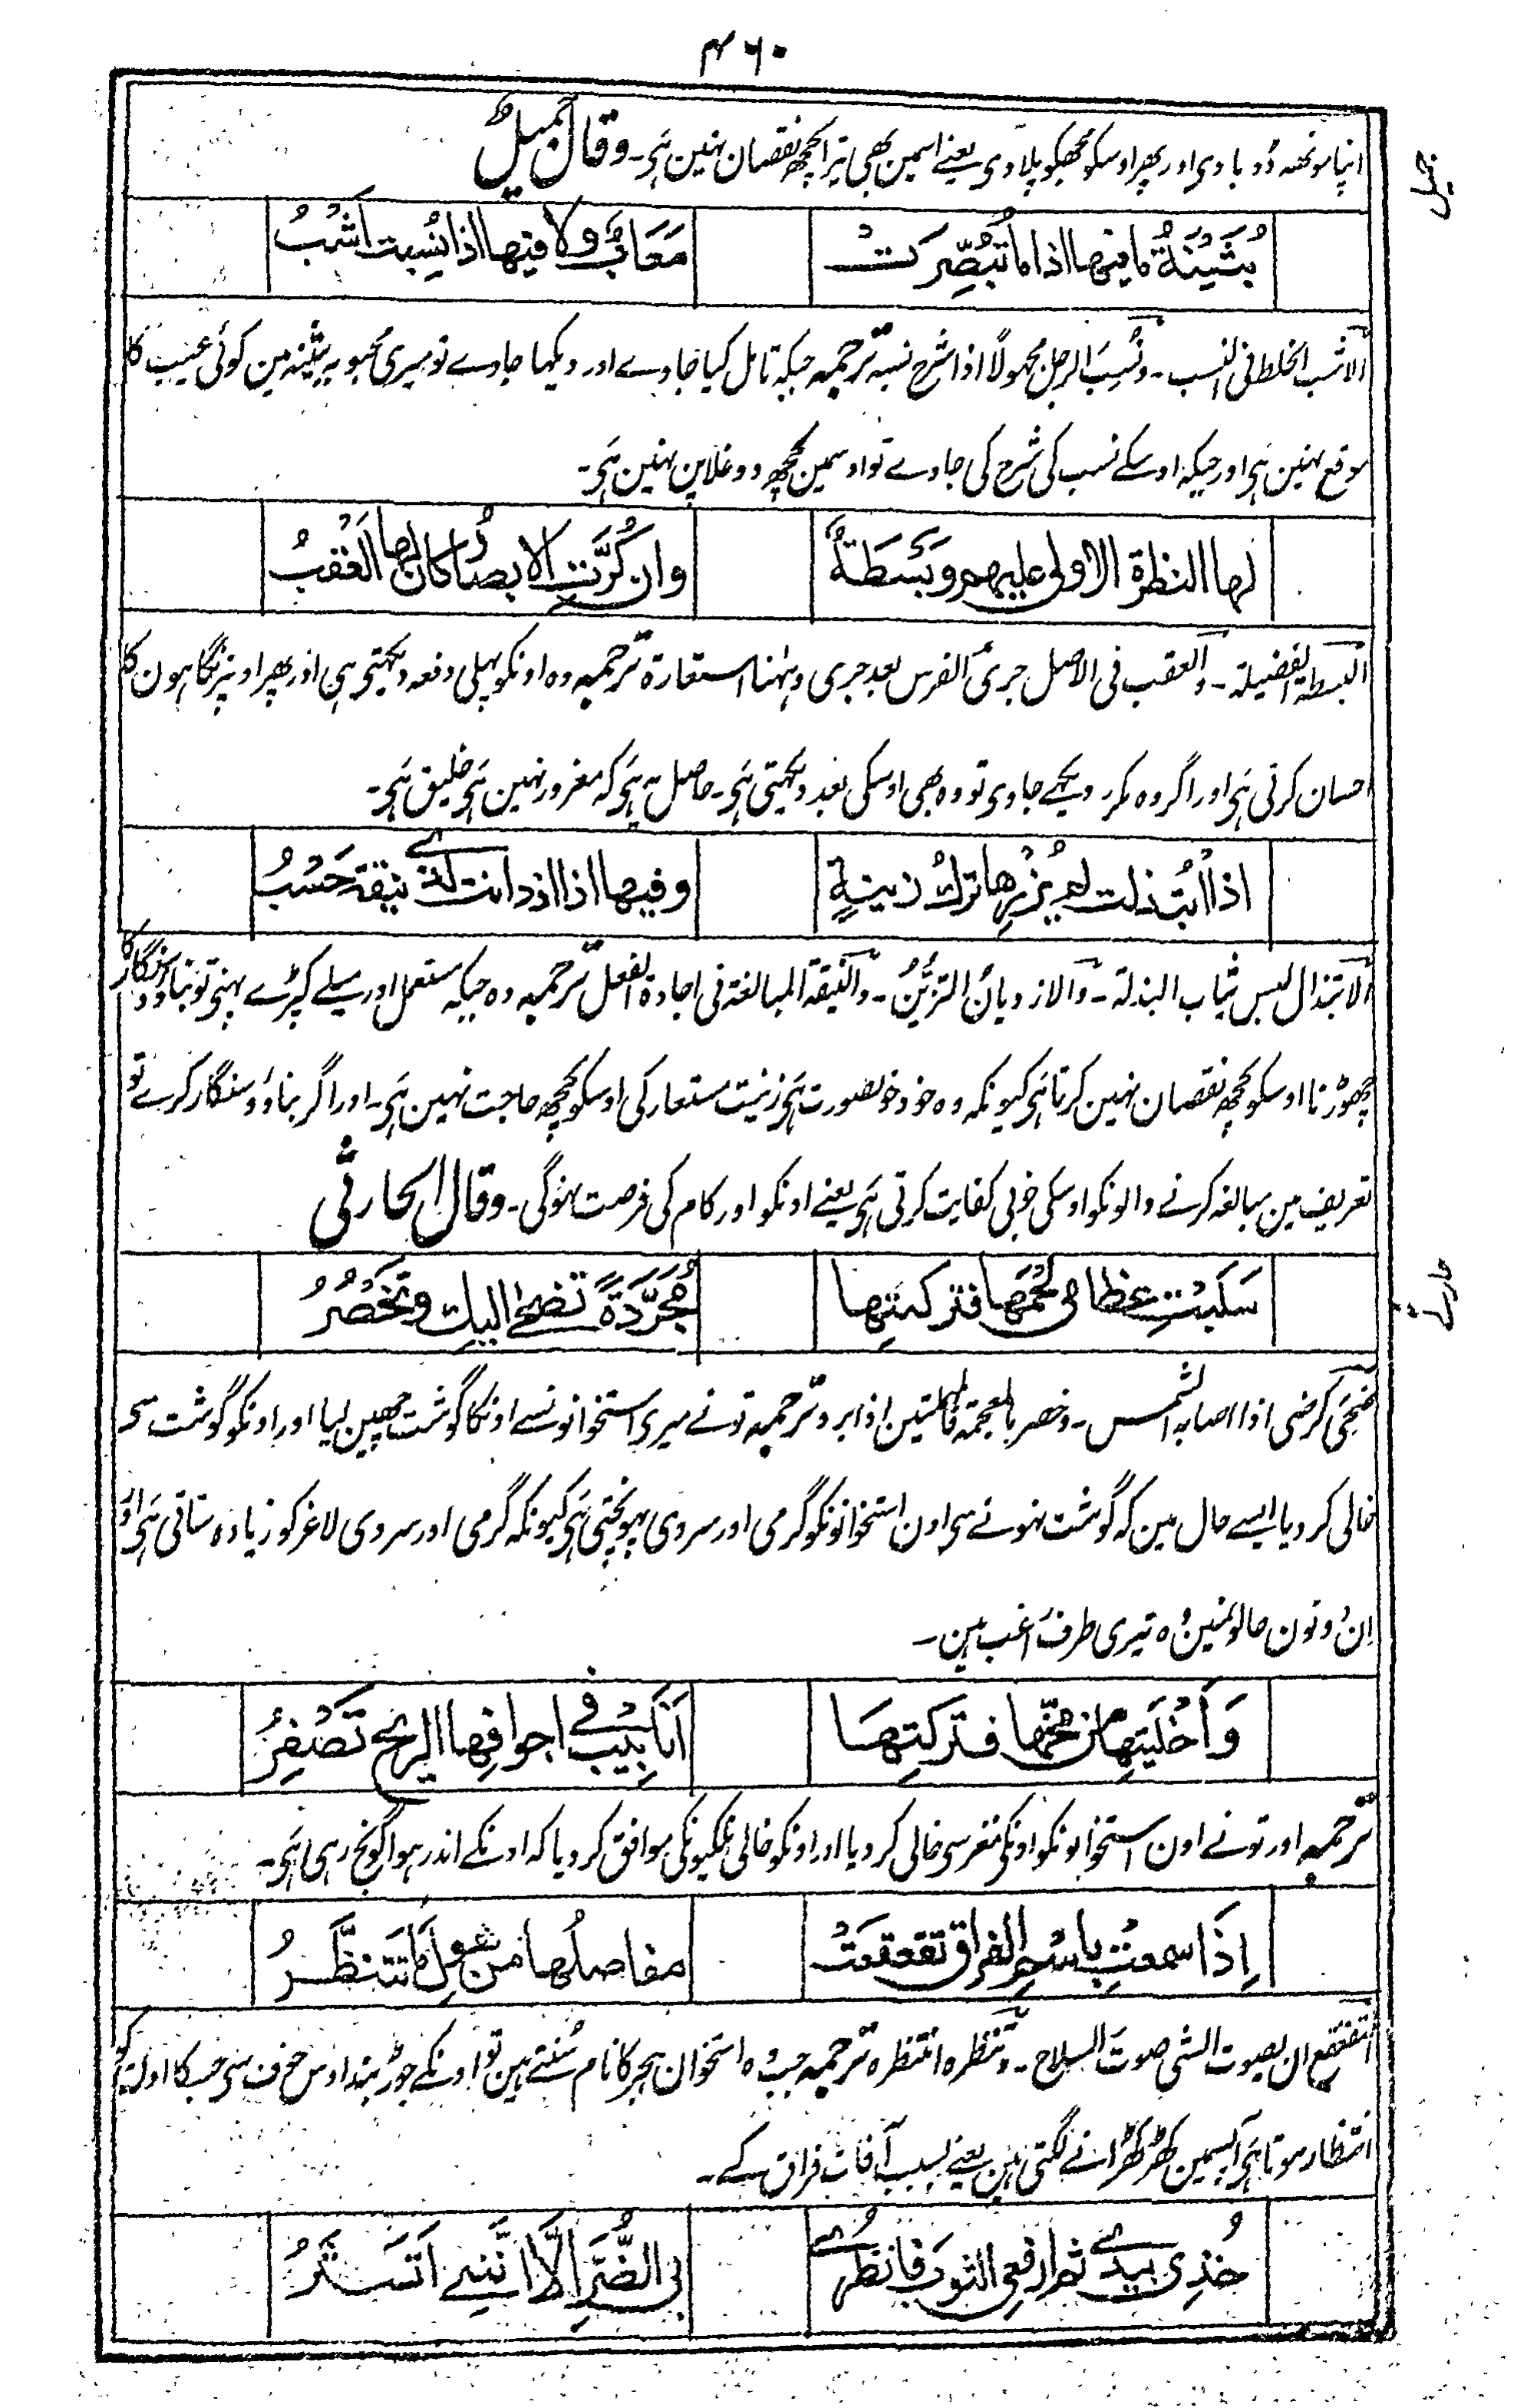 ۴۶۰
اپنا مونھہ ڈوبا دی اور پھر اوسکو مجھکو پلا دی یعنے اسمین بھی تیرا کچھ نقصان نہین ہَی۔ وقال جمیلٌ
جمیل
بُثَیْنَةُ ما فیھا اذا ما تُبُصِّرَتْ مَعَابٌ ولا فیھا اذا نُسِبت اَشْبُ
الاشب الخلط فی النسب۔ ونُسِبَ الرجل مجہولاً اذا شرح نسبہ ترجمہ جبکہ تامل کیا جاوے اور دیکھا جاوے تو میری محبوبہ بثینہ مین کوئی عیب کا
موقع نہین ہَی اور جبکہ اوسکے نسب کی شرح کی جاوے تو اوسمین کچھ دوغلاپن نہین ہَی۔
لھا النظرة الاولی علیھم وبَسْطَةٌ وان کُرَّتِ الابصارُ کان لھا العَقْبُ
البسطۃ الفضیلۃ۔ والعقب فی الاصل جریُ الفرس بعد جری وہٰہنا استعارۃ ترجمہ وہ اونکو پہلی دفعہ دیکھتی ہی اور پھر اونپر نگاہون کا
احسان کرتی ہَی اور اگر وہ مکرر دیکھے جاوی تو وہ بھی اوسکی بعد دیکھتی ہَی۔ حاصل یہ ہَی کہ مغرور نہین ہَی خلیق ہَی۔
اذا ابتُذلت لم یُزْرِھا ترکُ زینةٍ وفیھا اذا ازدانت لذی نیقةٍ حَسْبُ
الابتذال لبس ثیاب البذلۃ۔ والازدیانُ التزیُّنُ۔ والنیقۃ المبالغۃ فی اجادۃ الفعل ترجمہ وہ جبکہ مستعمل اور میلے کپڑے پہنی تو بناؤ و سنگار کا
چھوڑنا اوسکو کچھ نقصان نہین کرتا ہَی کیونکہ وہ خود خوبصورت ہَی زینت مستعار کی اوسکو کچھ حاجت نہین ہَی۔ اور اگر بناؤ و سنگار کرے تو
تعریف مین مبالغہ کرنے والونکو اوسکی خوبی کفایت کرتی ہَی یعنے اونکو اور کام کی فرصت نہوگی۔ وقال الحارثی
حارثے
سَلَبْتِ عظامی لَحْمَھا فترکتِھا مُجَرَّدَةً تضحٰی الیك وتَخْصَرُ
ضَحِیَ کرضی اذا اصابہ الشمس۔ وخصر بالمعجمۃ فالمہملتین اذا برد ترجمہ تونے میری استخوانونسے اونکا گوشت چھین لیا اور اونکو گوشت سے
خالی کر دیا ایسے حال مین کہ گوشت نہونے سی اون استخوانونکو گرمی اور سردی پہونچتی ہَی کیونکہ گرمی اور سردی لاغر کو زیادہ ستاتی ہَی اور
اِن دونون حالونمین وُہ تیری طرف راغب ہین۔
وَاَخْلَیْتِھا من مُخِّھا فترکتِھا اَنَابِیْبَ فی اجوافھا الریح تَصْفِرُ
ترجمہ اور تونے اون استخوانونکو اونکی مغز سی خالی کر دیا اور اونکو خالی نلکیونکی موافق کر دیا کہ اونکے اندر ہوا گونج رہی ہَی۔
اِذَا سمعتْ باسْمِ الفراق تقعقعَتْ مفاصلُھا من ھول ما تَتَنظَّرُ
التقعقع ان یصوت الشی صوت السلاح۔ وتنظرہ انتظرہ ترجمہ جب وُہ استخوان ہجر کا نام سُنتے ہین تو اونکے جوڑ بند اوس خوف سی جسکا اونکو
انتظار ہوتا ہَی آپسمین کھڑکھڑانے لگتی ہین یعنے بسبب آفات فراق کے۔
خُذِی بیدے ثم ارفعی الثوبَ فانظُری بی الضُّرَّ اِلَّا اَنَّنِے اَتَسَتَّرُ